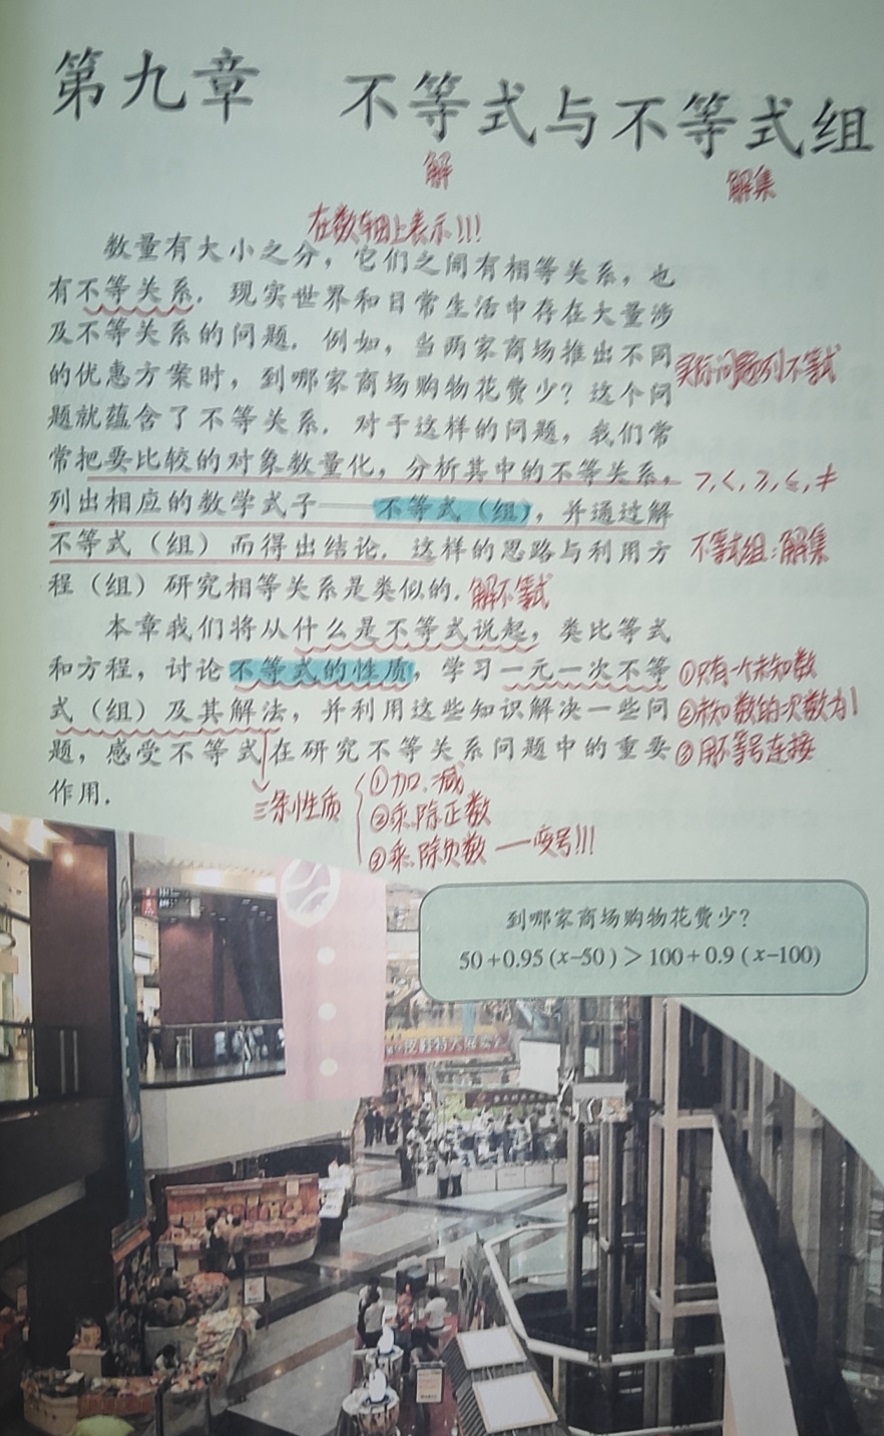 第九章 不等式与不等式组
解 解集
在数轴上表示!!!
数量有大小之分，它们之间有相等关系，也
有不等关系．现实世界和日常生活中存在大量涉
及不等关系的问题．例如，当两家商场推出不同
的优惠方案时，到哪家商场购物花费少？这个问
实际问题列不等式
题就蕴含了不等关系．对于这样的问题，我们常
常把要比较的对象数量化，分析其中的不等关系，
>,<,≥,≤,≠
列出相应的数学式子——不等式（组），并通过解
不等式（组）而得出结论．这样的思路与利用方
不等式组：解集
程（组）研究相等关系是类似的．
解不等式
本章我们将从什么是不等式说起，类比等式
和方程，讨论不等式的性质，学习一元一次不等
①只有一个未知数
式（组）及其解法，并利用这些知识解决一些问
②未知数的次数为1
题，感受不等式在研究不等关系问题中的重要
③用不等号连接
作用．
三条性质
①加、减
②乘、除正数
③乘、除负数——变号!!!
到哪家商场购物花费少？
50+0.95(x-50)＞100+0.9(x-100)